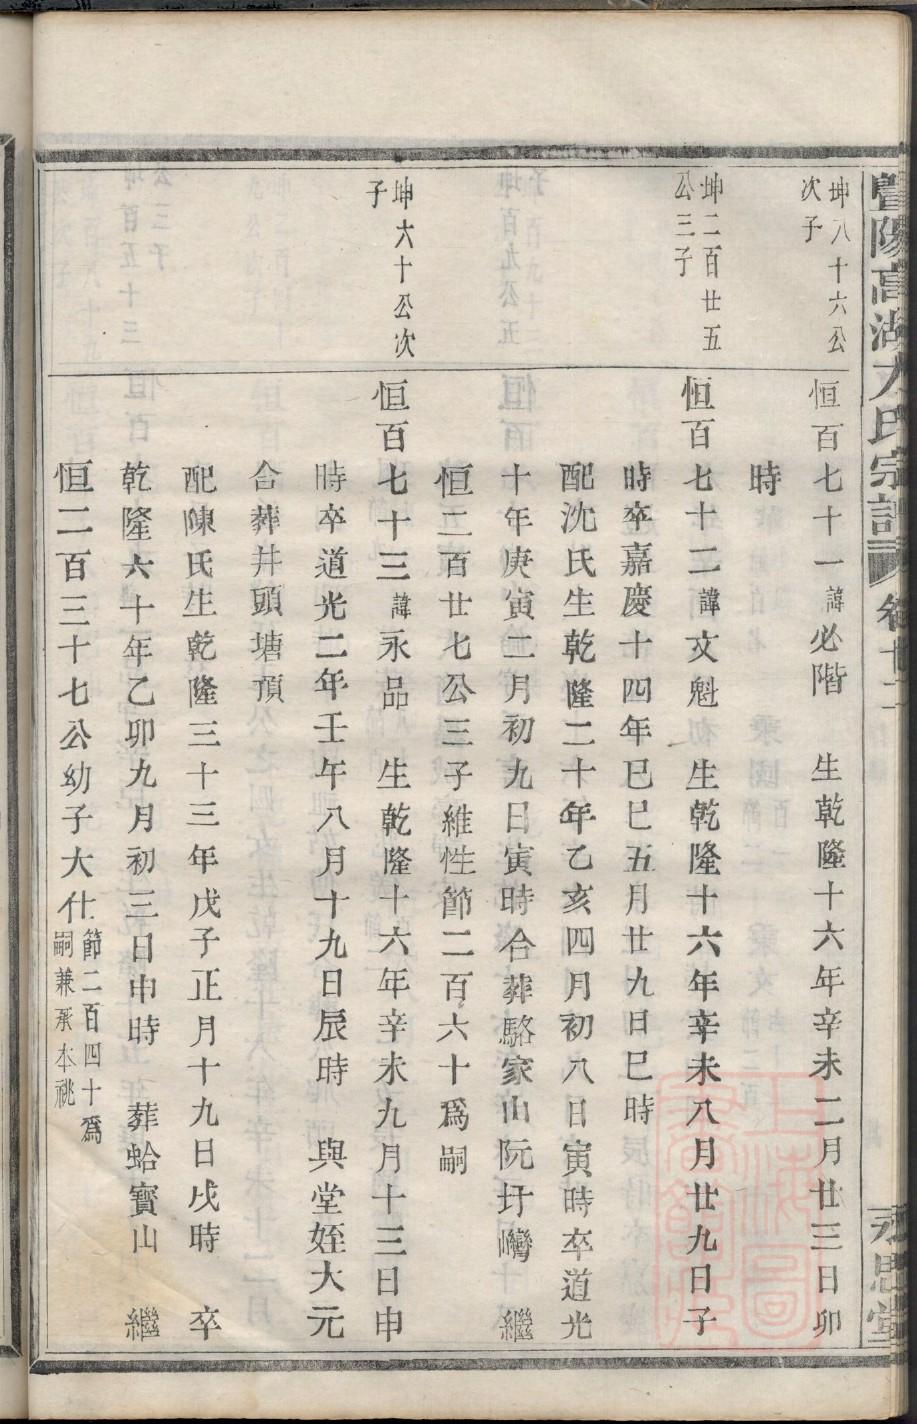 暨陽高湖
氏宗譜
永思堂
坤八十六公
次子
恒百七十一諱必階 生乾隆十六年辛未二月廿三日卯
時
坤二百廿五
公三子
恒百七十二諱文魁 生乾隆十六年辛未八月廿九日子
時卒嘉慶十四年巳巳五月廿九日巳時
配沈氏生乾隆二十年乙亥四月初八日寅時卒道光
十年庚寅二月初九日寅時合葬駱家山阮圩巒 繼
恒二百廿七公三子維性節二百六十爲嗣
坤六十公次
子
恒百七十三諱永品 生乾隆十六年辛未九月十三日申
時卒道光二年壬午八月十九日辰時 與堂姪大元
合葬井頭塘預
配陳氏生乾隆三十三年戊子正月十九日戌時 卒
乾隆六十年乙卯九月初三日申時 葬蛤寳山 繼
恒二百三十七公幼子大什節二百四十爲
嗣兼承本祧